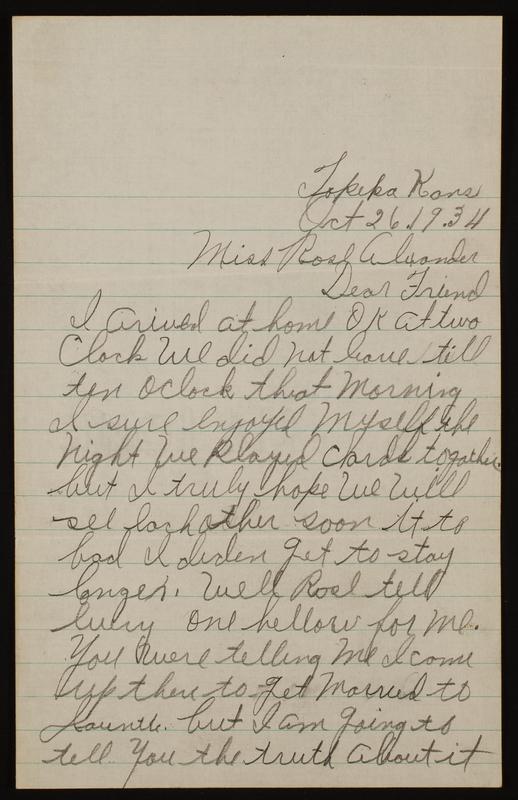 Topeka Kans
Oct 26. 19.34
Miss Rose Alexander
Dear Friend
I arived at home OK at two
Clock We did not leave till
ten oclock that Morning
I sure enjoyed Myself the
Night We Played Cards togather.
but I truly hope We Will
see eachother soon it to
bad I diden get to stay
longer. Well Rose tell
every one hellow for Me.
You Were telling Me I come
up there to get Married to
but I am going to
tell You the truth About it